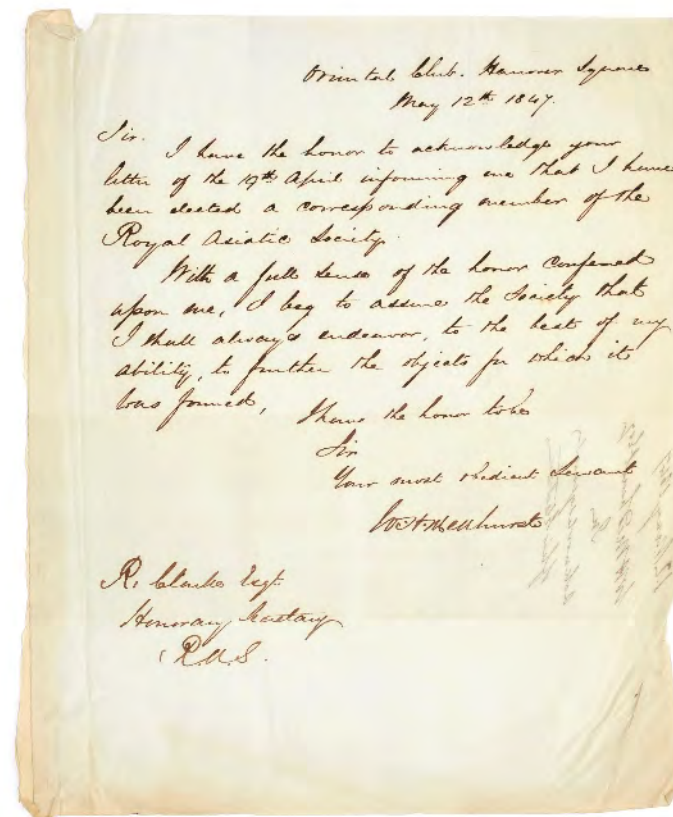 Oriental Club. Hanover Square
May 12th 1847.
Sir.
I have the honor to acknowledge your
letter of the 19th April informing me that I have
been elected a corresponding member of the
Royal Asiatic Society.
With a full sense of the honor conferred
upon me, I beg to assure the Society that
I shall always endeavor, to the best of my
ability, to further the objects for which it
was formed,
I have the honor to be
Sir
Your most obedient Servant
W. H. Medhurst
R. Clarke Esqr.
Honorary Secretary
R.A.S.